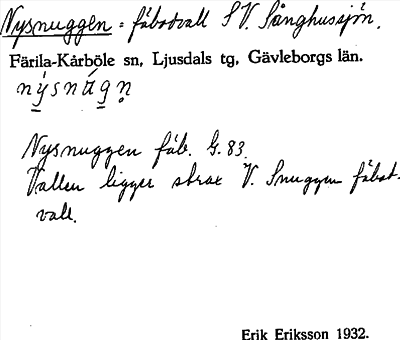 Nysnuggen = fäbodvall S V. Sånghussjön.
Färila-Kårböle sn, Ljusdals tg, Gävleborgs län.
Nysnuggen fäb. G. 83.
Vallen ligger strax V. Snuggen fäbod-
vall.
Erik Eriksson 1932.